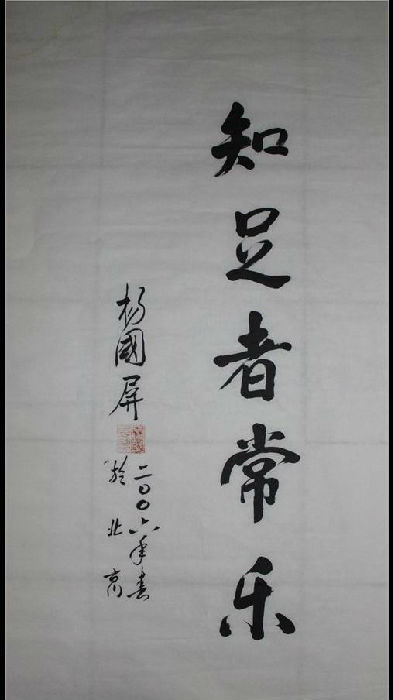 知足者常乐
杨國屏
二〇〇六年春
於北京